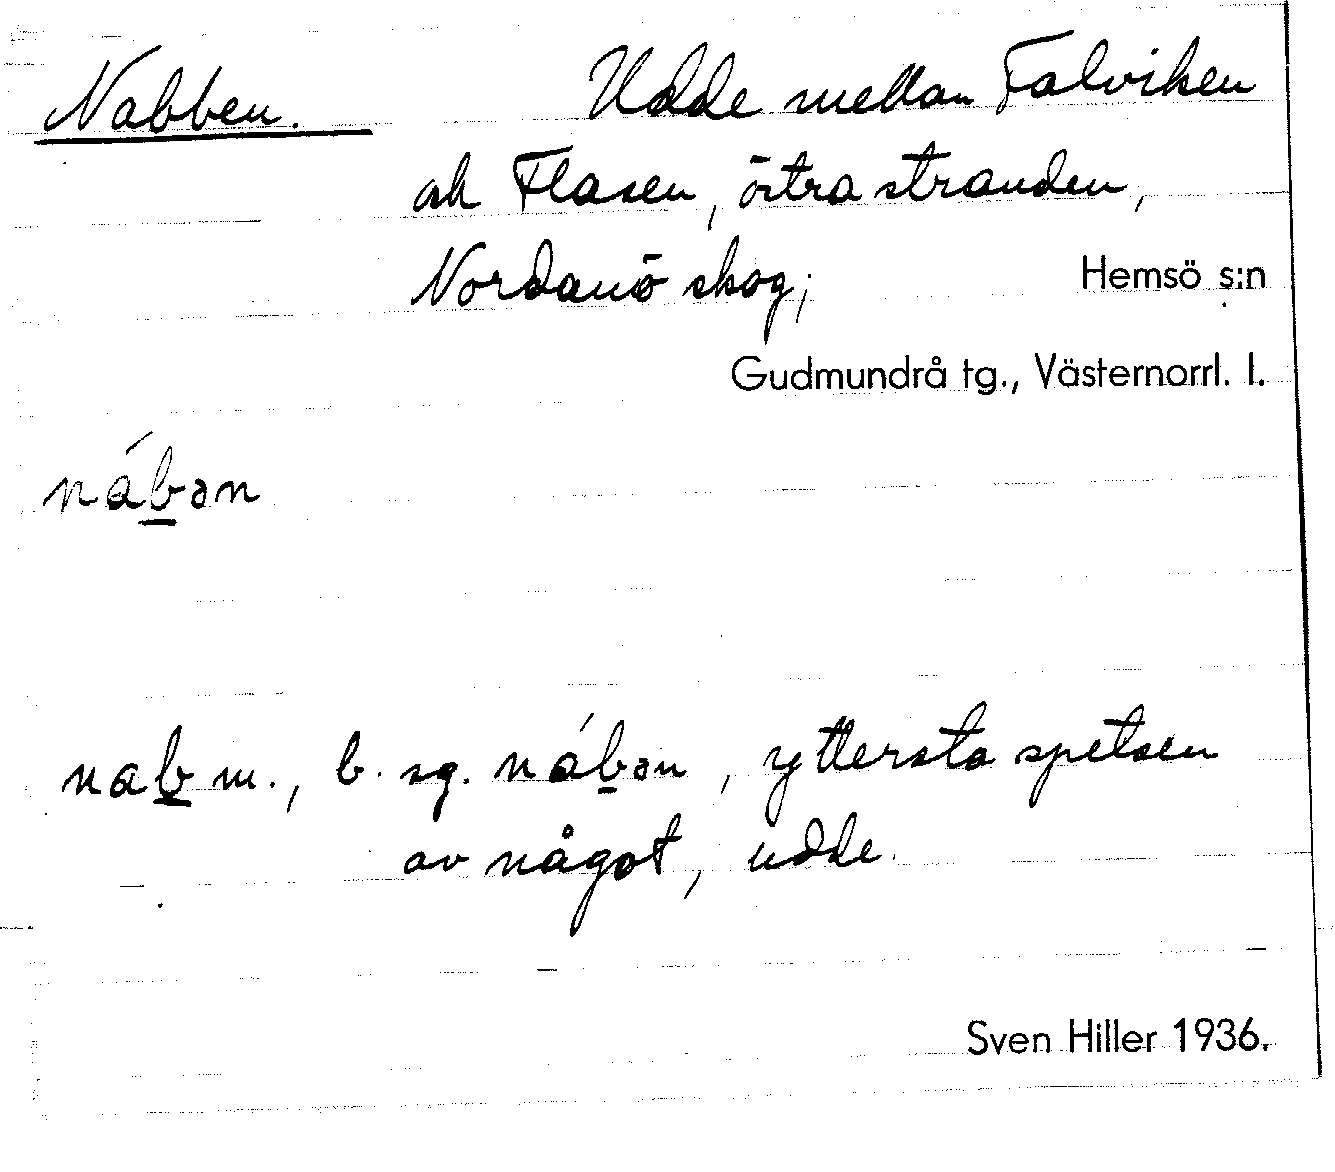 Nabben. Udde mellan Falviken
och Flasen, östra stranden,
Nordanö skog; Hemsö s:n
Gudmundrå tg., Västernorrl. l.
nábən
nab m., b. sg. nábən, yttersta spetsen
av något, udde.
Sven Hiller 1936.